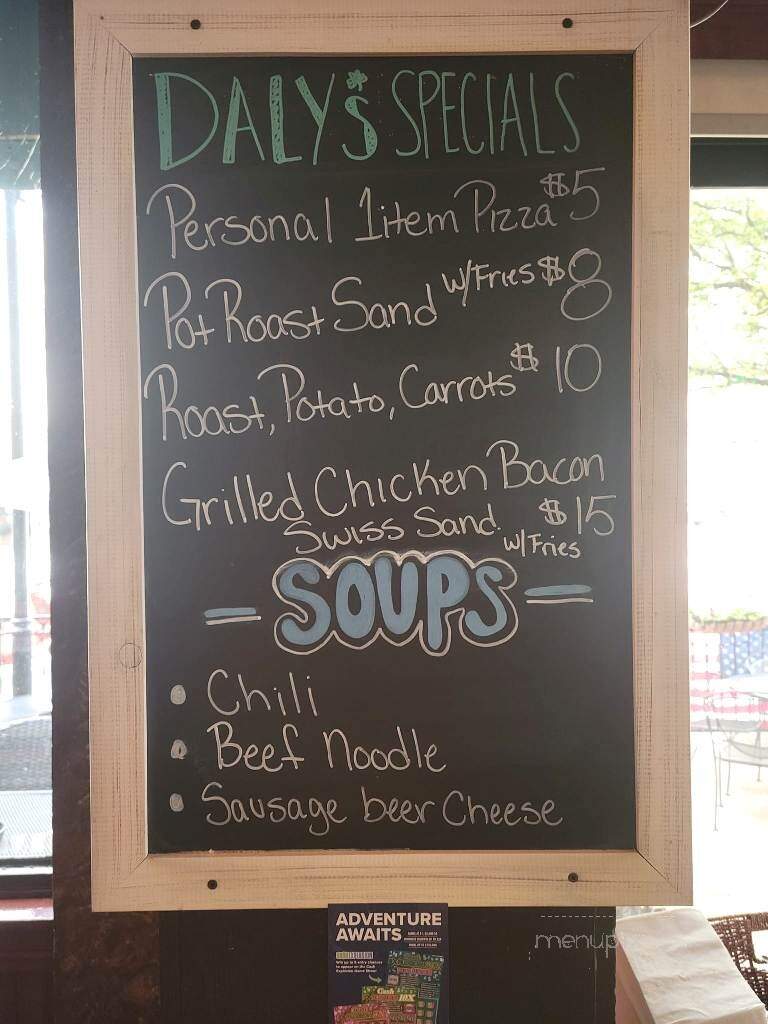 DALY'S SPECIALS
Personal 1item Pizza $5
Pot Roast Sand w/Fries $8
Roast, Potato, Carrots $10
Grilled Chicken Bacon
Swiss Sand. $15
w/Fries
SOUPS
• Chili
• Beef Noodle
• Sausage beer Cheese
ADVENTURE
AWAITS
Cash
menup